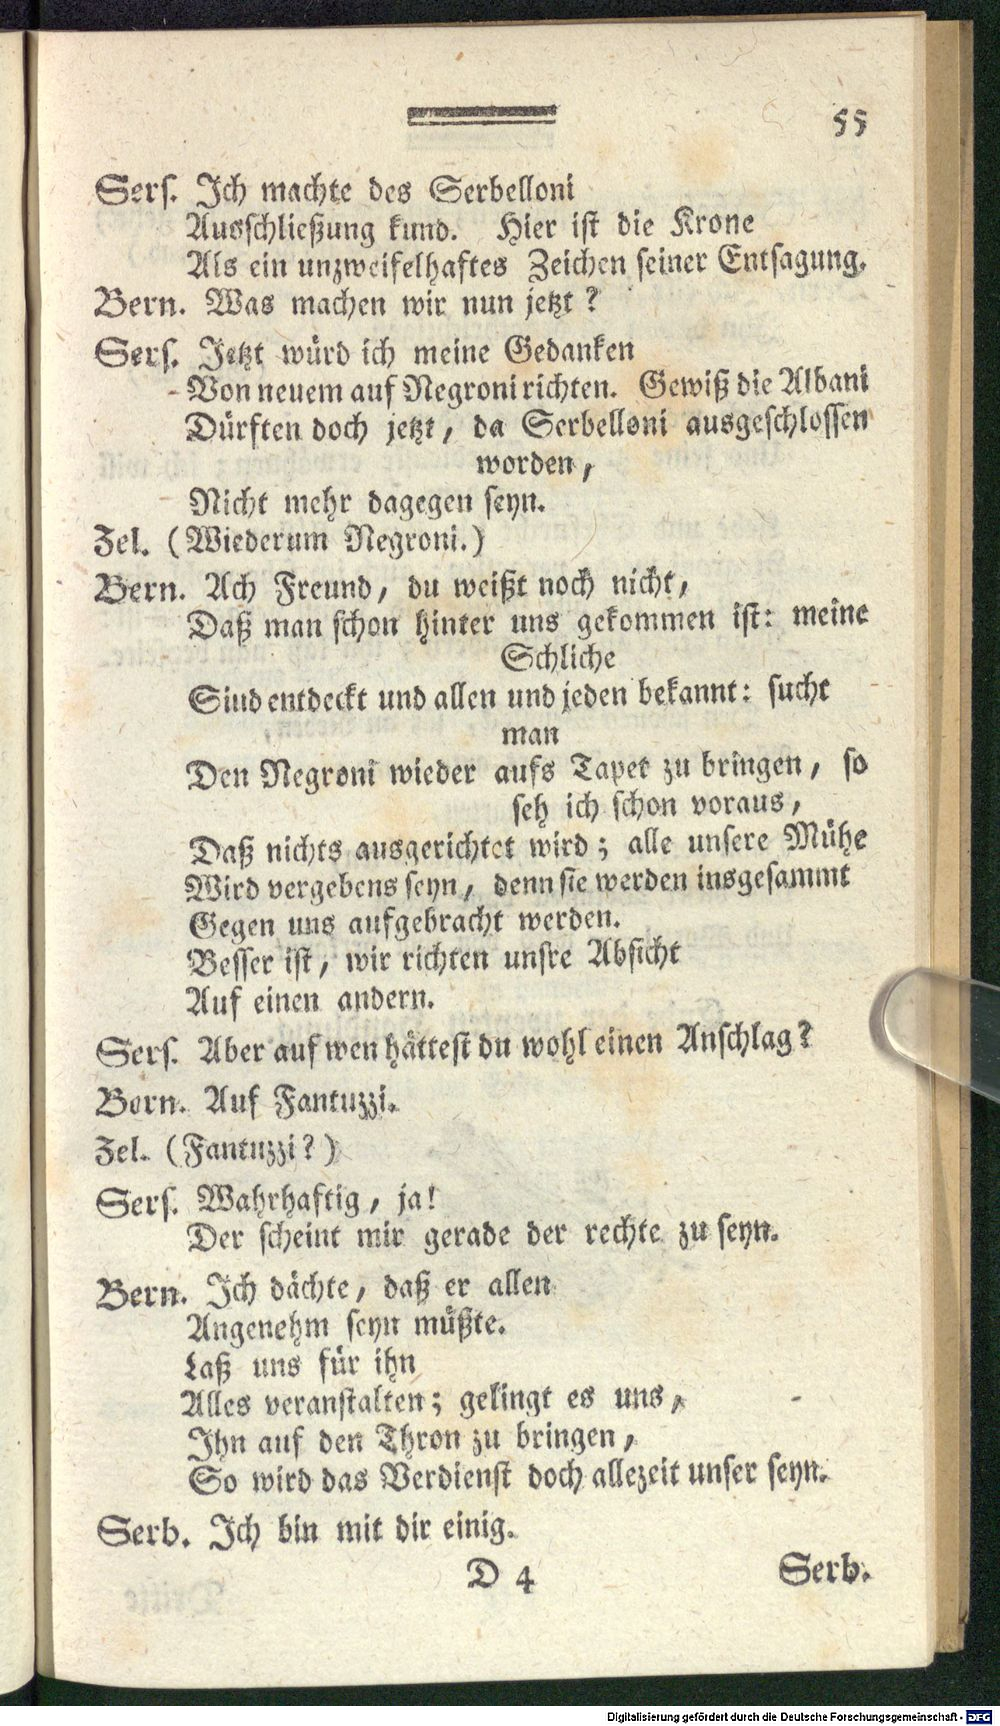 55
Sers. Ich machte des Serbelloni
Ausschließung kund. Hier ist die Krone
Als ein unzweifelhaftes Zeichen seiner Entsagung.
Bern. Was machen wir nun jetzt?
Sers. Jetzt würd ich meine Gedanken
Von neuem auf Negroni richten. Gewiß die Albani
Dürften doch jetzt, da Serbelloni ausgeschlossen
worden,
Nicht mehr dagegen seyn.
Zel. (Wiederum Negroni.)
Bern. Ach Freund, du weißt noch nicht,
Daß man schon hinter uns gekommen ist: meine
Schliche
Sind entdeckt und allen und jeden bekannt: sucht
man
Den Negroni wieder aufs Tapet zu bringen, so
seh ich schon voraus,
Daß nichts ausgerichtet wird; alle unsere Mühe
Wird vergebens seyn, denn sie werden insgesammt
Gegen uns aufgebracht werden.
Besser ist, wir richten unsre Absicht
Auf einen andern.
Sers. Aber auf wen hättest du wohl einen Anschlag?
Bern. Auf Fantuzzi.
Zel. (Fantuzzi?)
Sers. Wahrhaftig, ja!
Der scheint mir gerade der rechte zu seyn.
Bern. Ich dächte, daß er allen
Angenehm seyn müßte.
Laß uns für ihn
Alles veranstalten; gelingt es uns,
Ihn auf den Thron zu bringen,
So wird das Verdienst doch allezeit unser seyn.
Serb. Ich bin mit dir einig.
D 4 Serb.
Digitalisierung gefördert durch die Deutsche Forschungsgemeinschaft - DFG